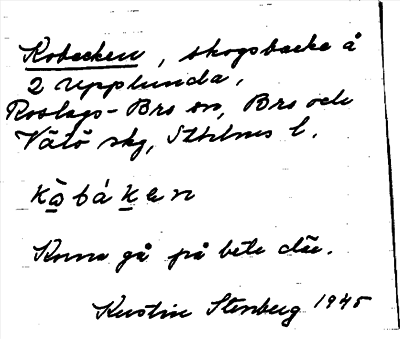 Kobacken, skogsbacke å
2 Upplunda,
Roslags-Bro sn, Bro och
Vätö skg, Sthlms l.
kò̱báḵen
Korna gå på bete där.
Kerstin Stenberg 1945